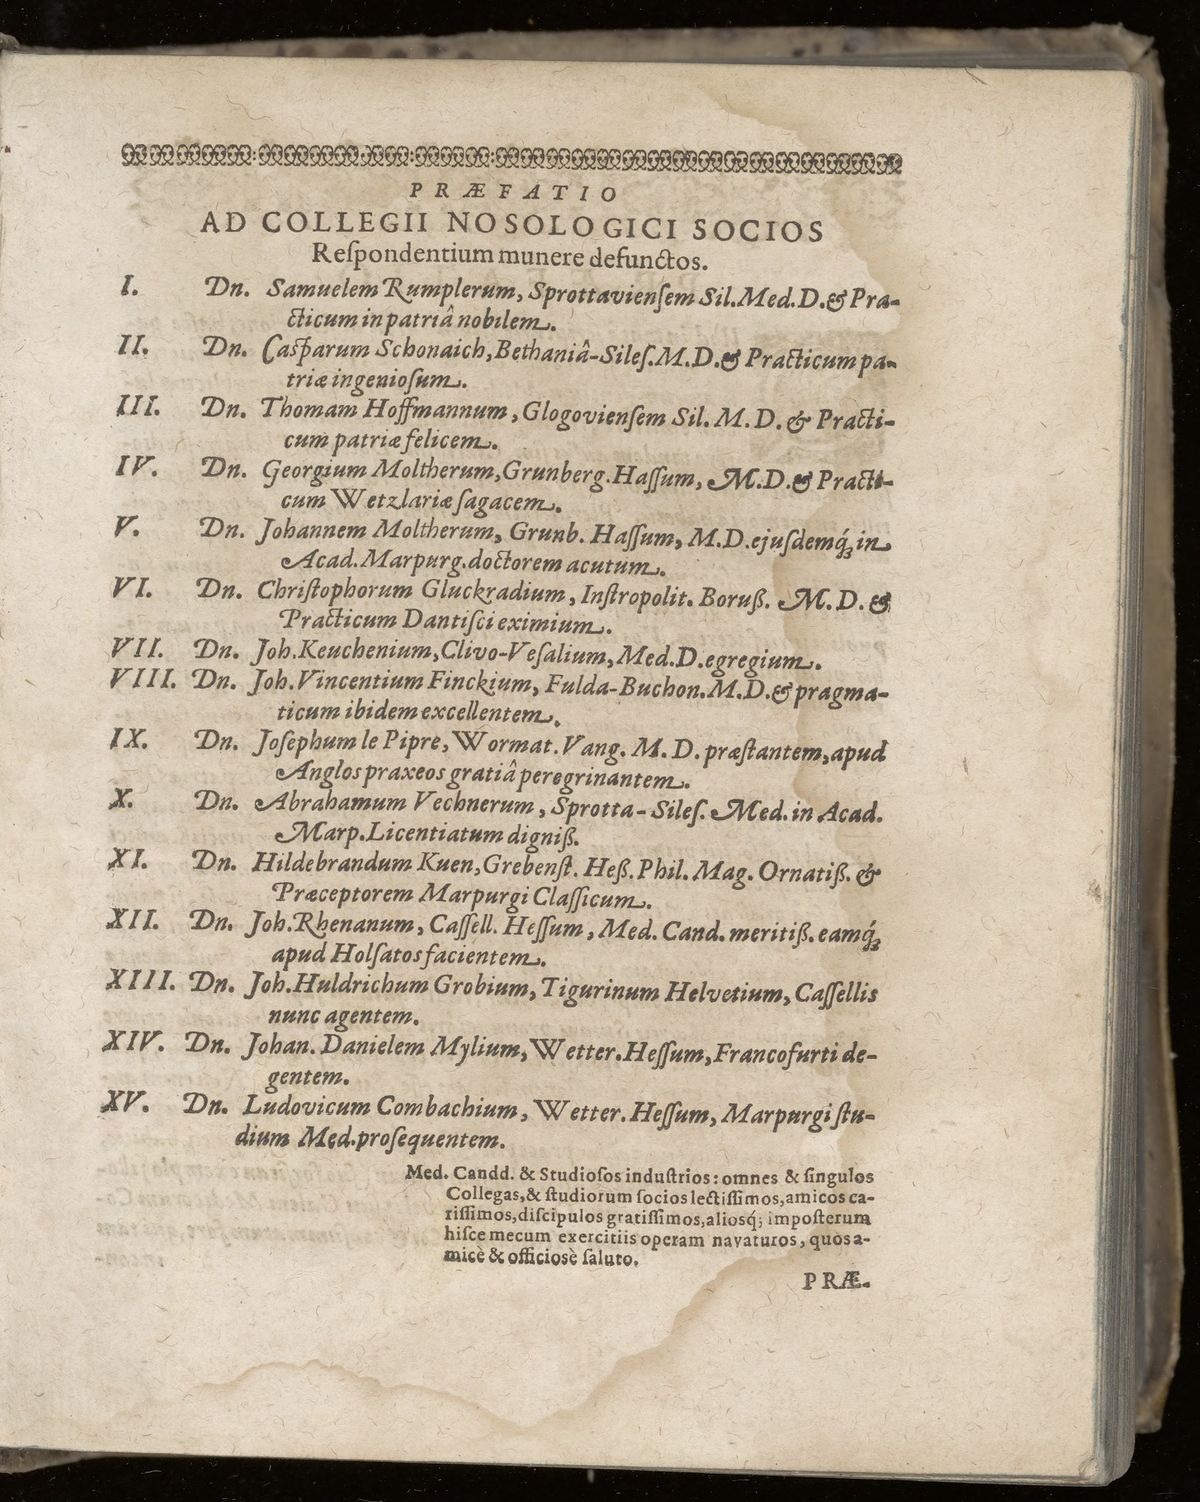 PRÆFATIO
AD COLLEGII NOSOLOGICI SOCIOS
Reſpondentium munere defunctos.
I. Dn. Samuelem Rumplerum, Sprottavienſem Sil. Med. D. & Pra-
cticum in patriâ nobilem.
II. Dn. Caſparum Schonaich, Bethaniâ-Sileſ. M. D. & Practicum pa-
triæ ingenioſum.
III. Dn. Thomam Hoffmannum, Glogovienſem Sil. M. D. & Practi-
cum patriæ felicem.
IV. Dn. Georgium Moltherum, Grunberg. Haſſum, M. D. & Practi-
cum Wetzlariæ ſagacem.
V. Dn. Johannem Moltherum, Grunb. Haſſum, M. D. ejuſdemq́ꝫ in
Acad. Marpurg. doctorem acutum.
VI. Dn. Chriſtophorum Gluckradium, Inſtropolit. Boruß. M. D. &
Practicum Dantiſci eximium.
VII. Dn. Joh. Keuchenium, Clivo-Veſalium, Med. D. egregium.
VIII. Dn. Joh. Vincentium Finckium, Fulda-Buchon. M. D. & pragma-
ticum ibidem excellentem.
IX. Dn. Joſephum le Pipre, Wormat. Vang. M. D. præſtantem, apud
Anglos praxeos gratiâ peregrinantem.
X. Dn. Abrahamum Vechnerum, Sprotta-Sileſ. Med. in Acad.
Marp. Licentiatum digniß.
XI. Dn. Hildebrandum Kuen, Grebenſt. Heß. Phil. Mag. Ornatiß. &
Præceptorem Marpurgi Claſſicum.
XII. Dn. Joh. Rhenanum, Caſſell. Heſſum, Med. Cand. meritiß. eamq́ꝫ
apud Holſatos facientem.
XIII. Dn. Joh. Huldrichum Grobium, Tigurinum Helvetium, Caſſellis
nunc agentem.
XIV. Dn. Johan. Danielem Mylium, Wetter. Heſſum, Francofurti de-
gentem.
XV. Dn. Ludovicum Combachium, Wetter. Heſſum, Marpurgi ſtu-
dium Med. proſequentem.
Med. Candd. & Studioſos induſtrios: omnes & ſingulos
Collegas, & ſtudiorum ſocios lectiſſimos, amicos ca-
riſſimos, diſcipulos gratiſſimos, alioſq́; impoſterum
hiſce mecum exercitiis operam navaturos, quos a-
micè & officiosè ſaluto.
PRÆ-